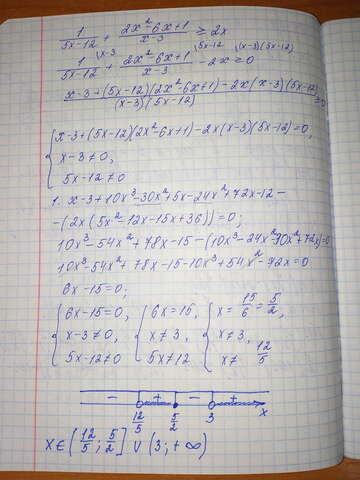 1/(5x-12) + (2x²-6x+1)/(x-3) ≥ 2x
1/(5x-12) \x-3 + (2x²-6x+1)/(x-3) \5x-12 - 2x \(x-3)(5x-12) ≥ 0
(x-3+(5x-12)(2x²-6x+1)-2x(x-3)(5x-12))/((x-3)(5x-12)) ≥ 0
{ x-3+(5x-12)(2x²-6x+1)-2x(x-3)(5x-12)=0,
x-3≠0,
5x-12≠0
1. x-3+10x³-30x²+5x-24x²+72x-12-
-(2x(5x²-12x-15x+36))=0;
10x³-54x²+78x-15-(10x³-24x²-30x²+72x)=0
10x³-54x²+78x-15-10x³+54x²-72x=0
6x-15=0;
{ 6x-15=0, { 6x=15, { x=15/6=5/2,
x-3≠0, x≠3, x≠3,
5x-12≠0 5x≠12 x≠12/5
- + - +
12/5 5/2 3 x
x∈(12/5; 5/2] ∪ (3; +∞)